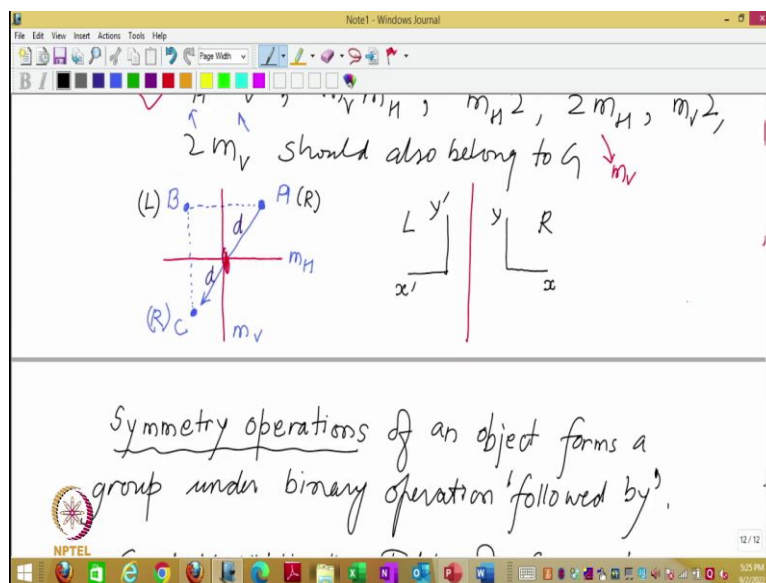 Note1 - Windows Journal
File Edit View Insert Actions Tools Help
Page Width
B I
m_V m_H, m_H 2, 2 m_H, m_V 2,
2 m_V should also belong to G m_V
(L) B A (R) L y' y R
d m_H
d x' x
(R) C m_V
Symmetry operations of an object forms a
group under binary operation 'followed by'.
NPTEL
12/12
5:25 PM